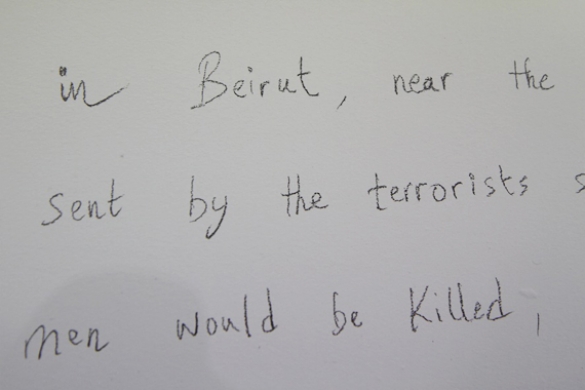 in Beirut, near the
sent by the terrorists s
men would be killed,